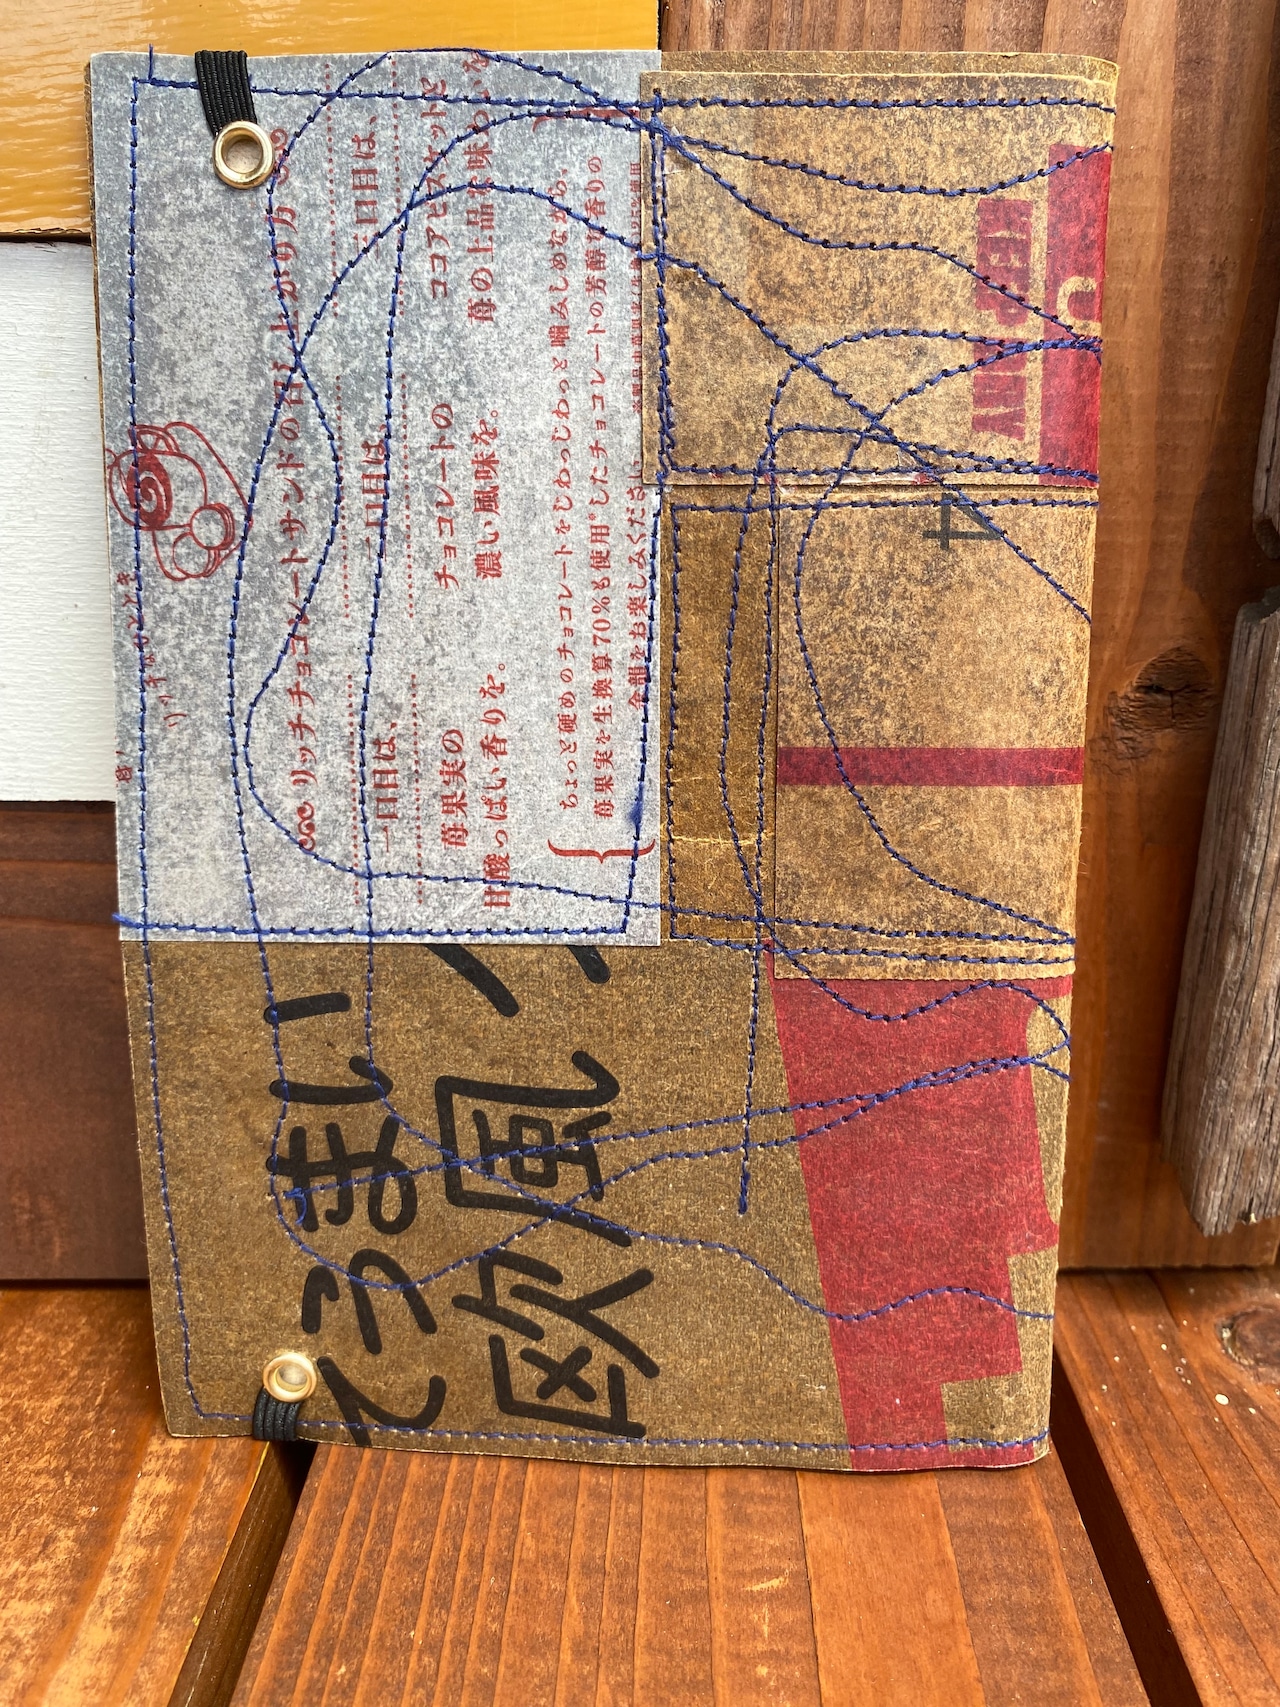 リッチなひととき
リッチチョコレートサンドの召し上がり方
一口目は、
苺果実の
甘酸っぱい香りを。
二口目は、
チョコレートの
濃い風味を。
三口目は、
ココアビスケットと
苺の上品な味わいを
ちょっと硬めのチョコレートをじわっじわっと噛みしめながら、
苺果実を生換算70%も使用*したチョコレートの芳醇な香りの
余韻をお楽しみくださ
てっまい
欧風
KEEP DRY
4